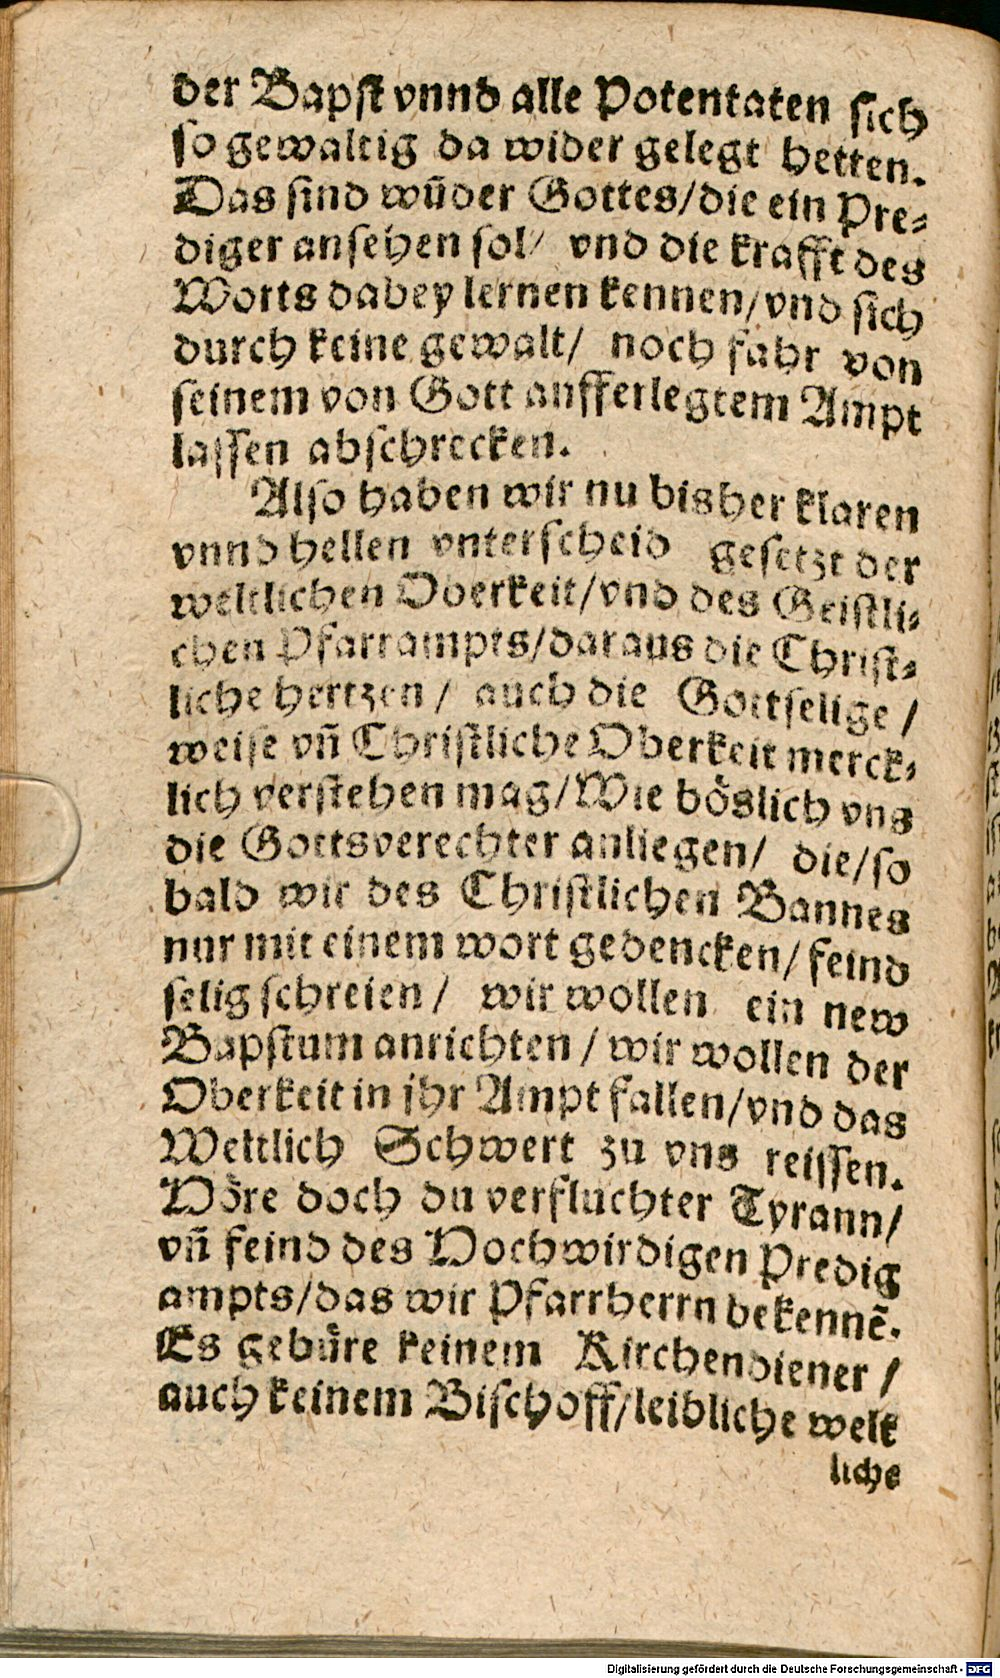 der Bapst vnnd alle Potentaten sich
so gewaltig da wider gelegt hetten.
Das sind wũder Gottes/die ein Pre⸗
diger ansehen sol/ vnd die krafft des
Worts dabey lernen kennen/vnd sich
durch keine gewalt/ noch fahr von
seinem von Gott aufferlegtem Ampt
lassen abschrecken.
Also haben wir nu bisher klaren
vnnd hellen vnterscheid gesetzt der
weltlichen Oberkeit/vnd des Geistli⸗
chen Pfarrampts/daraus die Christ⸗
liche hertzen/ auch die Gottselige/
weise vñ Christliche Oberkeit merck⸗
lich verstehen mag/Wie böslich vns
die Gottsverechter anliegen/ die/so
bald wir des Christlichen Bannes
nur mit einem wort gedencken/feind
selig schreien/ wir wollen ein new
Bapstum anrichten/wir wollen der
Oberkeit in jhr Ampt fallen/vnd das
Weltlich Schwert zu vns reissen.
Höre doch du verfluchter Tyrann/
vñ feind des Hochwirdigen Predig
ampts/das wir Pfarrherrn bekennẽ.
Es gebüre keinem Kirchendiener/
auch keinem Bischoff/leibliche welt
liche
Digitalisierung gefördert durch die Deutsche Forschungsgemeinschaft - DFG